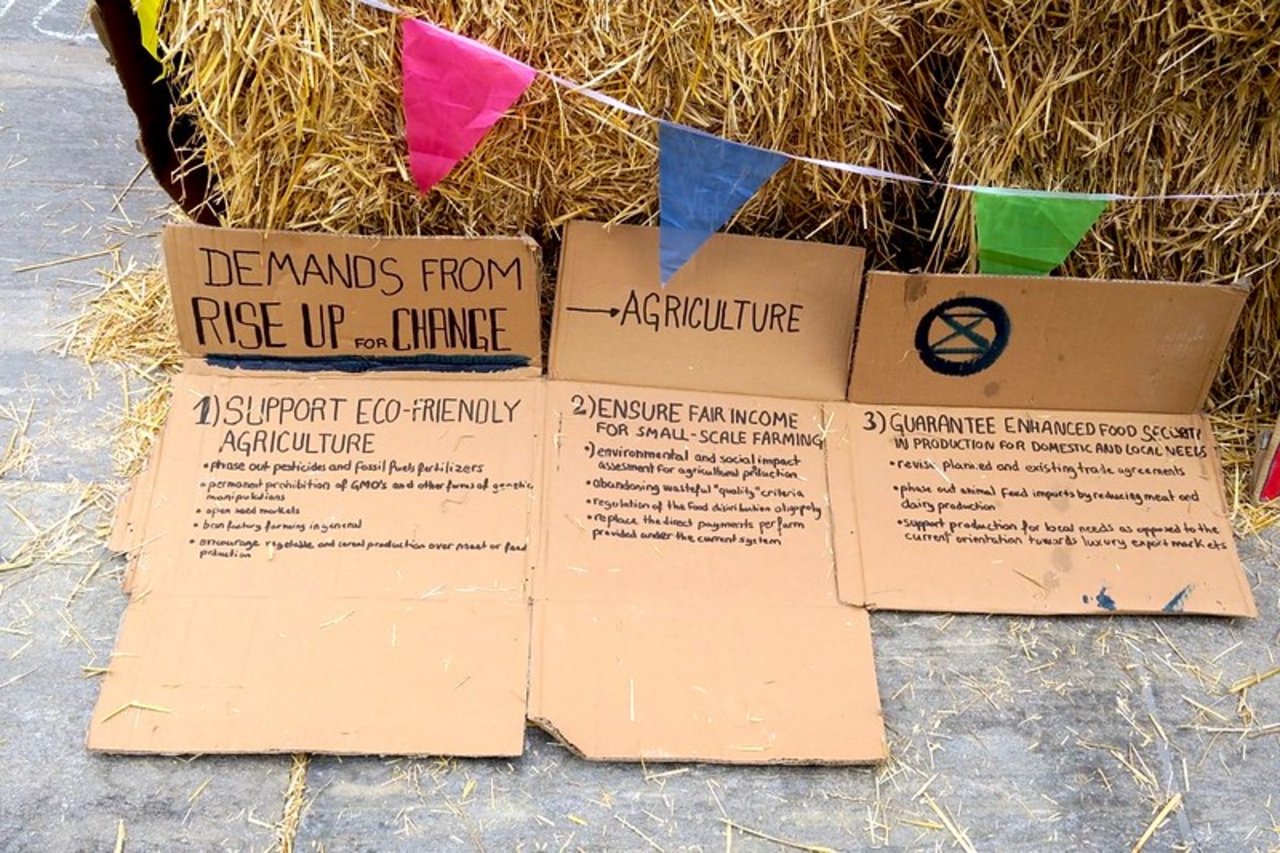 DEMANDS FROM
RISE UP FOR CHANGE
→AGRICULTURE
1) SUPPORT ECO-FRIENDLY
AGRICULTURE
• phase out pesticides and fossil fuels fertilizers
• permanent prohibition of GMO's and other forms of genetic
manipulations
• open seed markets
• ban factory farming in general
• encourage vegetable and cereal production over meat or feed
production
2) ENSURE FAIR INCOME
FOR SMALL-SCALE FARMING
•) environmental and social impact
assesment for agricultural production
• abandoning wasteful "quality" criteria
• regulation of the food distribution oligopoly
• replace the direct payments per farm
provided under the current system
3) GUARANTEE ENHANCED FOOD SECURITY
IN PRODUCTION FOR DOMESTIC AND LOCAL NEEDS
• revise planned and existing trade agreements
• phase out animal feed imports by reducing meat and
dairy production
• support production for local needs as opposed to the
current orientation towards luxury export markets